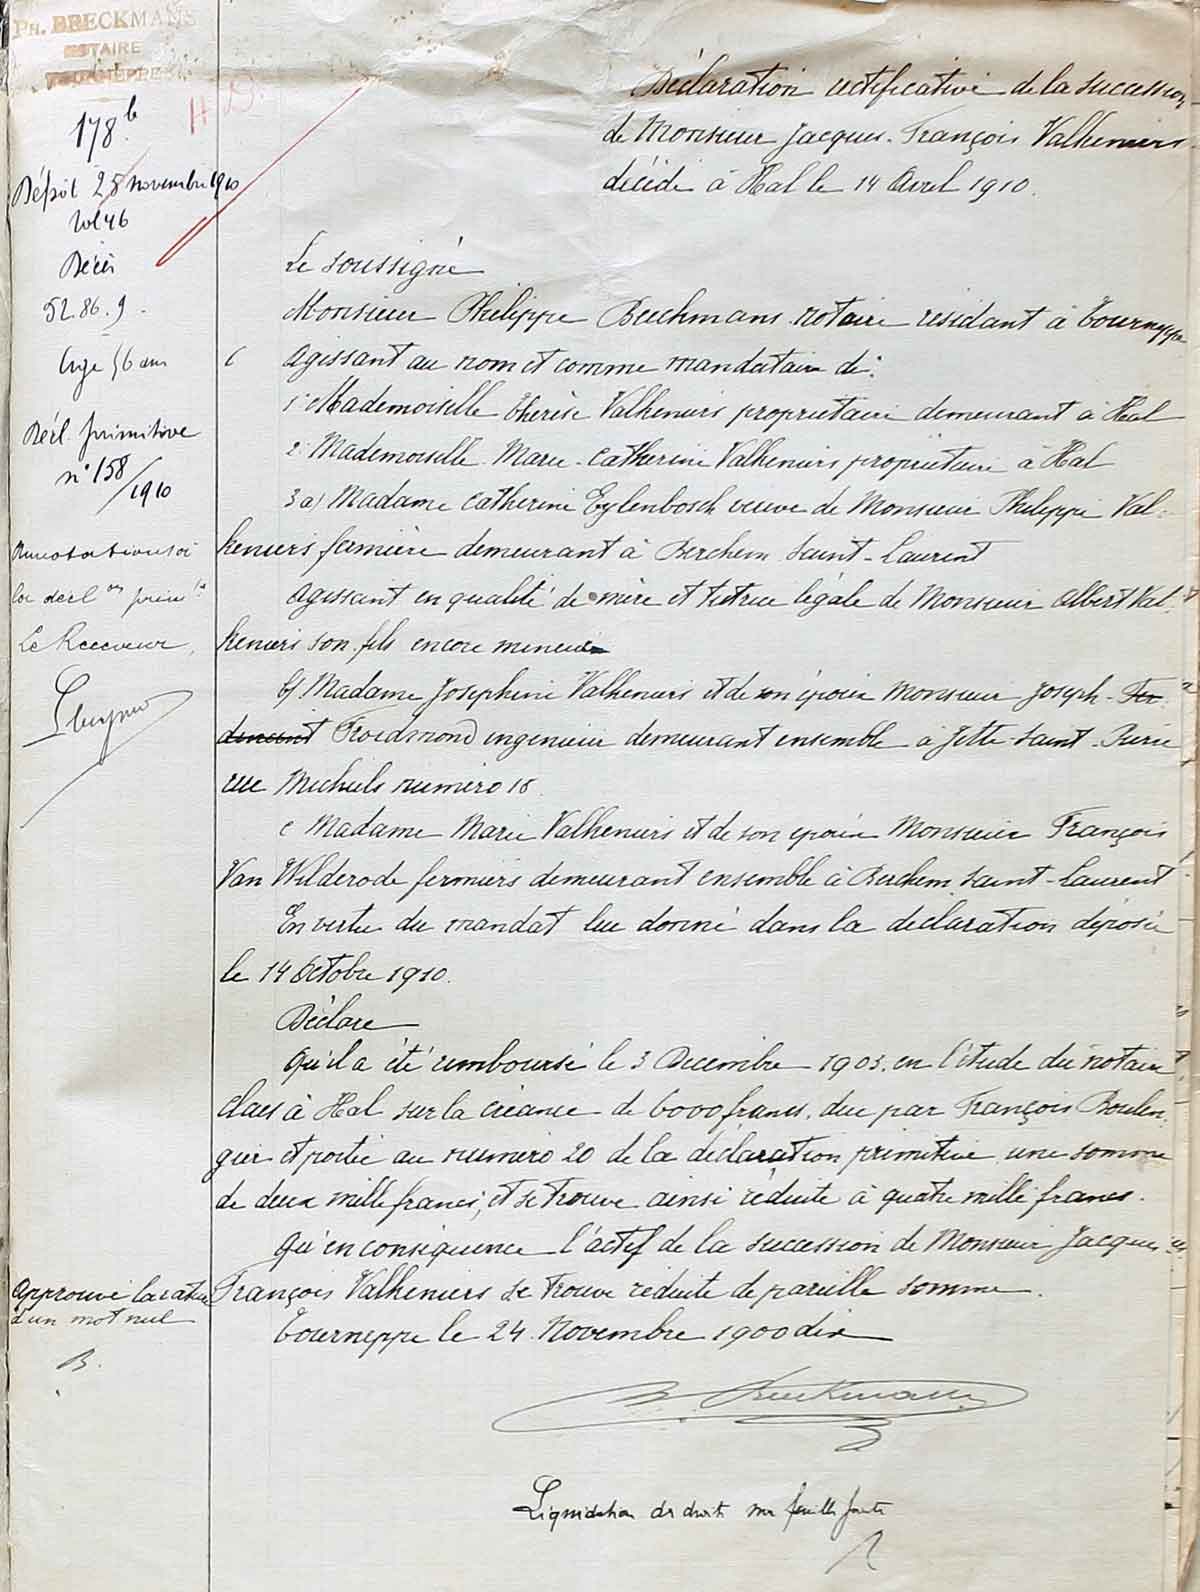 PH. BRECKMANS
NOTAIRE
TOURNEPPE
178 b
Dépôt 25 novembre 1910
vol 46
Décès
52.86.9.
âgé 56 ans
Décl. primitive
n° 158/1910
Annotation à
la decl on primi
Le Receveur,
Approuvé la rature
d'un mot nul
B.
Déclaration rectificative de la succession
de Monsieur Jacques-François Valkeniers
décédé à Hal le 14 Avril 1910.
Le soussigné
Monsieur Philippe Breckmans notaire résidant à Tourneppe
6 agissant au nom et comme mandataire de:
1° Mademoiselle Thérèse Valkeniers propriétaire demeurant à Hal
2° Mademoiselle Marie-Catherine Valkeniers propriétaire à Hal
3 a) Madame Catherine Eylenbosch veuve de Monsieur Philippe Val-
keniers fermière demeurant à Berchem Saint-Laurent
agissant en qualité de mère et tutrice légale de Monsieur Albert Val-
keniers son fils encore mineur
b) Madame Joséphine Valkeniers et de son époux Monsieur Joseph-Fer
dinant Froidmond ingénieur demeurant ensemble à Jette-Saint-Pierre
rue Michiels numéro 18.
c Madame Marie Valkeniers et de son époux Monsieur François
Van Wilderode fermiers demeurant ensemble à Berchem Saint-Laurent
En vertu du mandat lui donné dans la déclaration déposée
le 14 Octobre 1910.
Déclare
Qu'il a été remboursé le 3 Decembre 1903. en l'étude du notaire
Claes à Hal sur la créance de 6000 francs, due par François Boulen-
gier et portée au numéro 20 de la déclaration primitive une somme
de deux mille francs, et se trouve ainsi réduite à quatre mille francs.
Qu'en conséquence l'actif de la succession de Monsieur Jacques
François Valkeniers se trouve réduite de pareille somme.
Tourneppe le 24 Novembre 1900 dix
Breckmans
Liquidation de droits sur feuille jointe